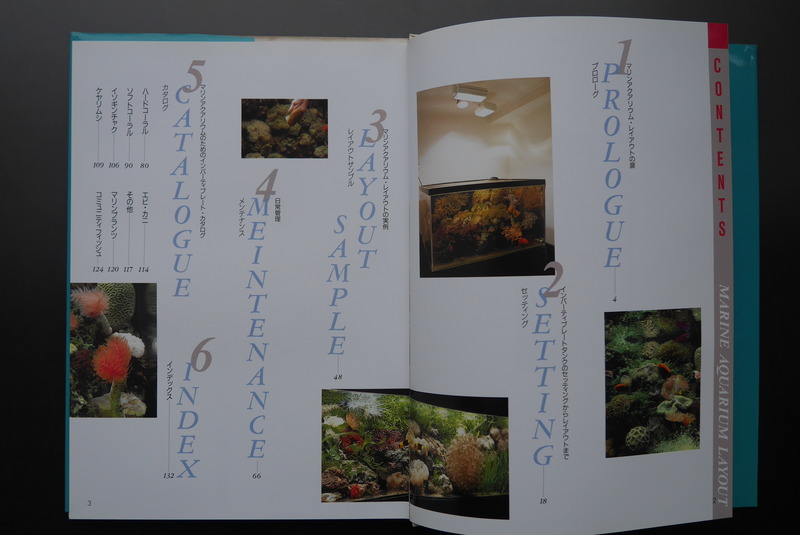 CONTENTS
MARINE AQUARIUM LAYOUT
1
PROLOGUE
マリンアクアリウム・レイアウトの扉
プロローグ
4
2
SETTING
インバーティブレートタンクのセッティングからレイアウトまで
セッティング
18
3
LAYOUT
SAMPLE
マリンアクアリウム・レイアウトの実例
レイアウトサンプル
48
4
MEINTENANCE
日常管理
メンテナンス
66
5
CATALOGUE
マリンアクアリウムのためのインバーティブレート・カタログ
カタログ
ハードコーラル 80
ソフトコーラル 90
イソギンチャク 106
ケヤリムシ 109
エビ・カニ 114
その他 117
マリンプランツ 120
コミュニティフィッシュ 124
6
INDEX
インデックス
132
3
2